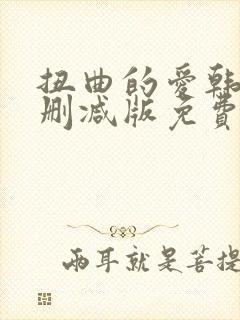 扭曲的爱韩
删减版免費
兩耳就是菩提